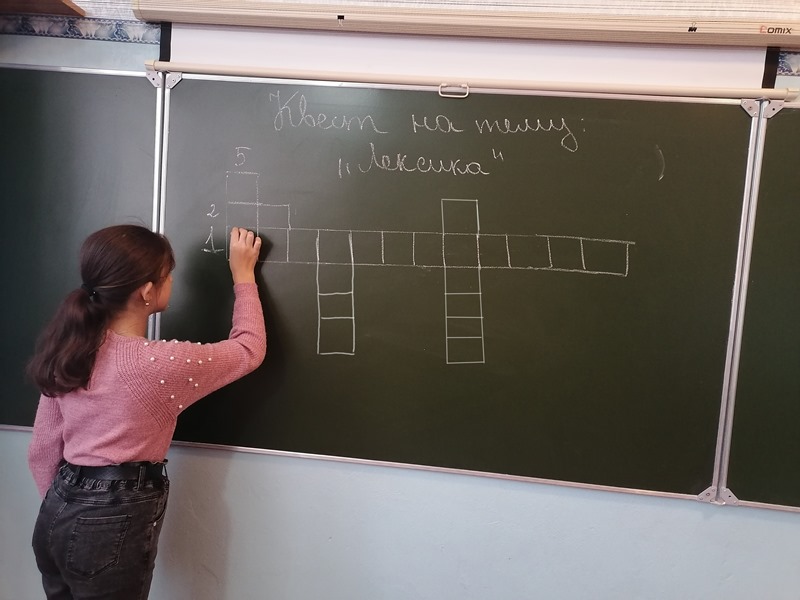 Comix
Квест на тему:
„Лексика"
5
2
1